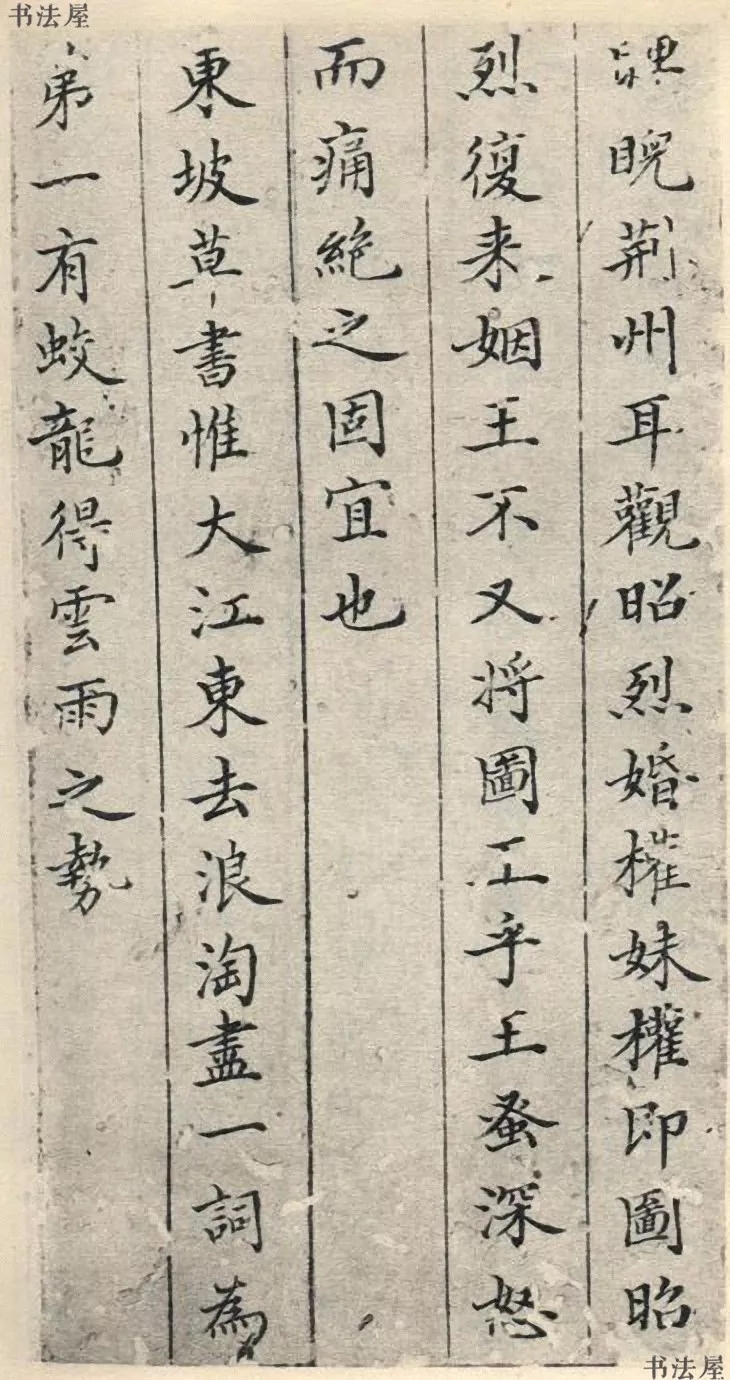 书法屋
睨荆州耳觀昭烈婚權妹權即圖昭
烈復来姻王不又將圖工乎王蚤深怒
而痛絶之固宜也
東坡草書惟大江東去浪淘盡一詞為
弟一有蛟龍得雲雨之勢
书法屋